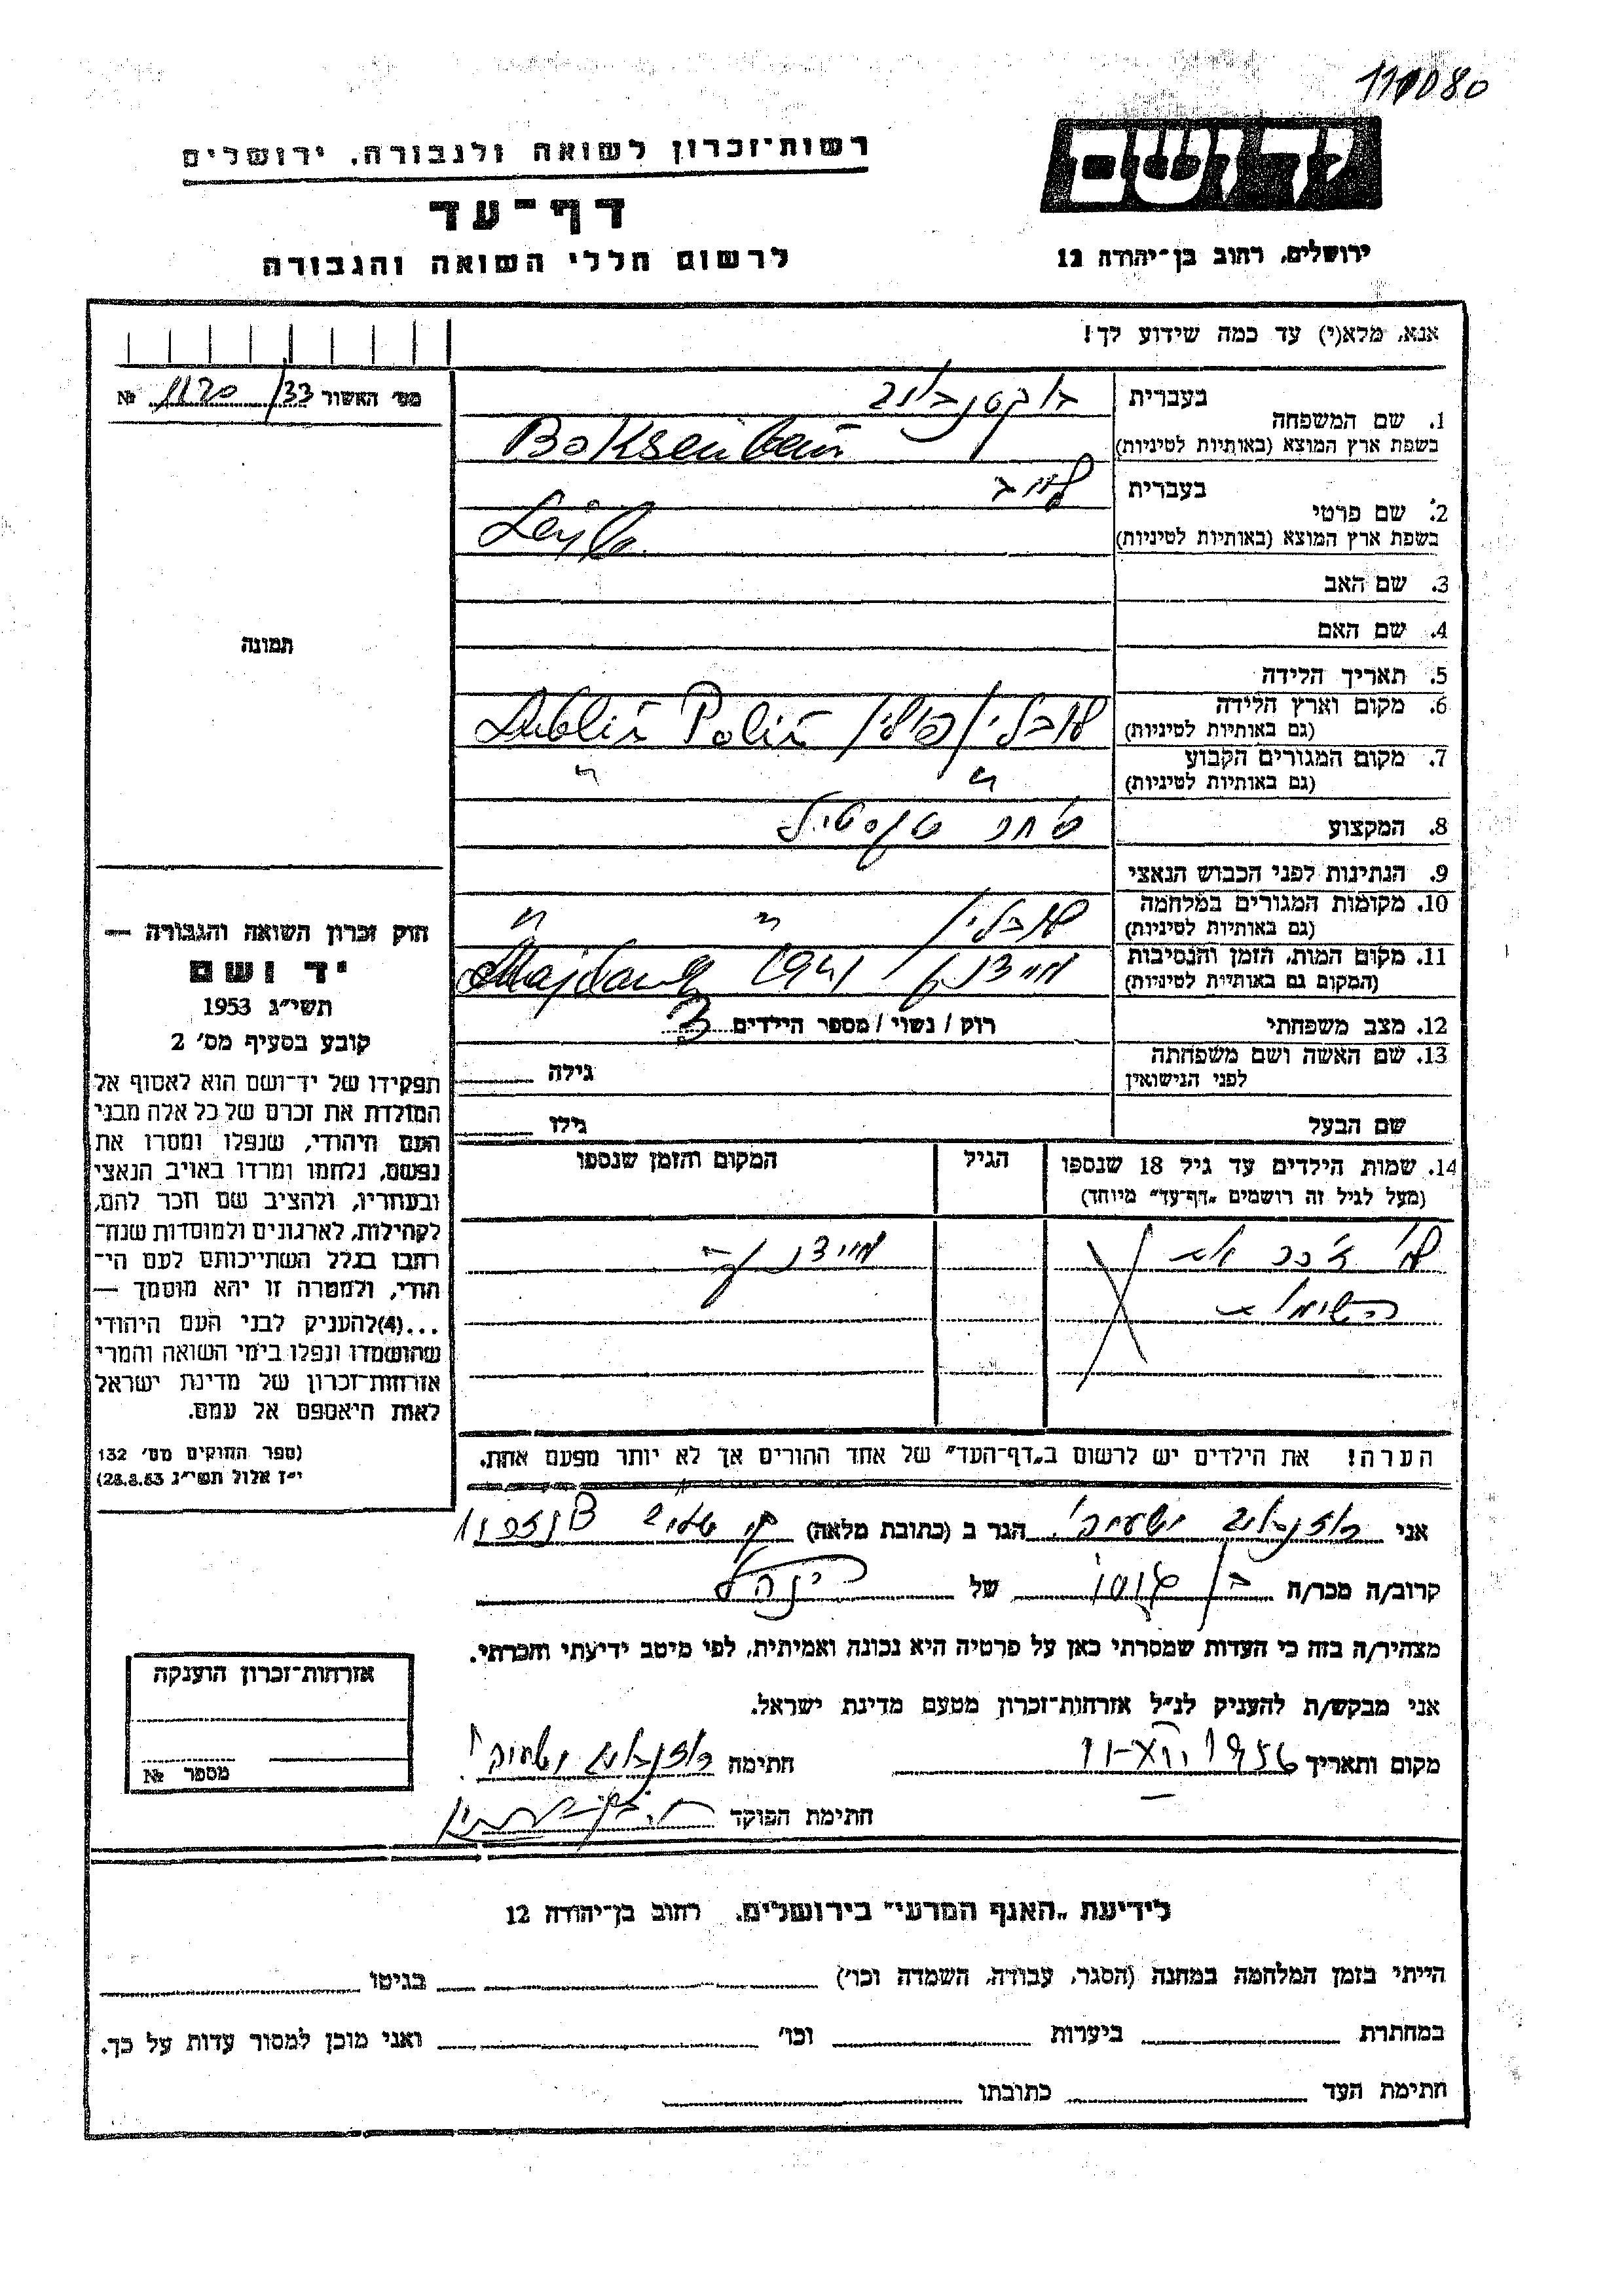 111080
רשות־זכרון לשואה ולגבורה, ירושלים
דף־עד
לרשום חללי השואה והגבורה
יד ושם
ירושלים, רחוב בן־יהודה 12
אנא, מלא(י) עד כמה שידוע לך!
מס׳ האשור 1120/33 №
תמונה
1. שם המשפחה
בעברית
בשפת ארץ המוצא (באותיות לטיניות) Boksenbaum
2. שם פרטי
בעברית לייב
בשפת ארץ המוצא (באותיות לטיניות) Lejb
3. שם האב
4. שם האם
5. תאריך הלידה
6. מקום וארץ הלידה
(גם באותיות לטיניות) לובלין/פולין Lublin Polin
7. מקום המגורים הקבוע
(גם באותיות לטיניות) " "
8. המקצוע סוחר טקסטיל
9. הנתינות לפני הכבוש הנאצי
10. מקומות המגורים במלחמה
(גם באותיות לטיניות) לובלין " "
11. מקום המות, הזמן והנסיבות
(המקום גם באותיות לטיניות) מיידנק 1941 Majdanek
12. מצב משפחתי רוק / נשוי / מספר הילדים 3
13. שם האשה ושם משפחתה
לפני הנישואין
גילה
שם הבעל גילו
14. שמות הילדים עד גיל 18 שנספו
(מעל לגיל זה רושמים „דף־עד” מיוחד)
הגיל
המקום והזמן שנספו
לא זוכר את מיידנק
השימות
הערה! את הילדים יש לרשום ב„דף־העד” של אחד ההורים אך לא יותר מפעם אחת.
חוק זכרון השואה והגבורה —
יד ושם
תשי״ג 1953
קובע בסעיף מס׳ 2
תפקידו של יד־ושם הוא לאסוף אל
המולדת את זכרם של כל אלה מבני
העם היהודי, שנפלו ומסרו את
נפשם, נלחמו ומרדו באויב הנאצי
ובעוזריו, ולהציב שם וזכר להם,
לקהילות, לארגונים ולמוסדות שנח־
רבו בגלל השתייכותם לעם הי־
הודי, ולמטרה זו יהא מוסמך —
...(4)להעניק לבני העם היהודי
שהושמדו ונפלו בימי השואה והמרי
אזרחות־זכרון של מדינת ישראל
לאות היאספם אל עמם.
(ספר החוקים מס׳ 132
י״ז אלול תשי״ג 28.8.53)
אני הגר ב (כתובת מלאה)
קרוב/ה מכר/ה בן של
מצהיר/ה בזה כי העדות שמסרתי כאן על פרטיה היא נכונה ואמיתית, לפי מיטב ידיעתי והכרתי.
אני מבקש/ת להעניק לנ״ל אזרחות־זכרון מטעם מדינת ישראל.
מקום ותאריך 1956 חתימה
חתימת הפוקד
אזרחות־זכרון הוענקה
מספר №
לידיעת „האגף המדעי” בירושלים, רחוב בן־יהודה 12
הייתי בזמן המלחמה במחנה (הסגר, עבודה, השמדה וכו׳) בגיטו
במחתרת ביערות וכו׳ ואני מוכן למסור עדות על כך.
חתימת העד כתובתו